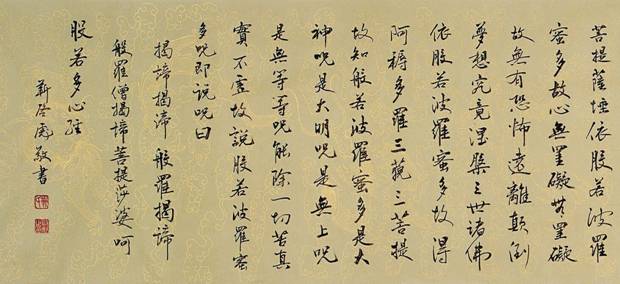 菩提薩埵依般若波羅
蜜多故心無罣礙無罣礙
故無有恐怖遠離顛倒
夢想究竟涅槃三世諸佛
依般若波羅蜜多故得
阿耨多羅三藐三菩提
故知般若波羅蜜多是大
神呪是大明呪是無上呪
是無等等呪能除一切苦真
實不虛故說般若波羅蜜
多呪即說呪曰
揭諦揭諦 般羅揭諦
般羅僧揭諦菩提莎婆呵
般若多心経
敬書